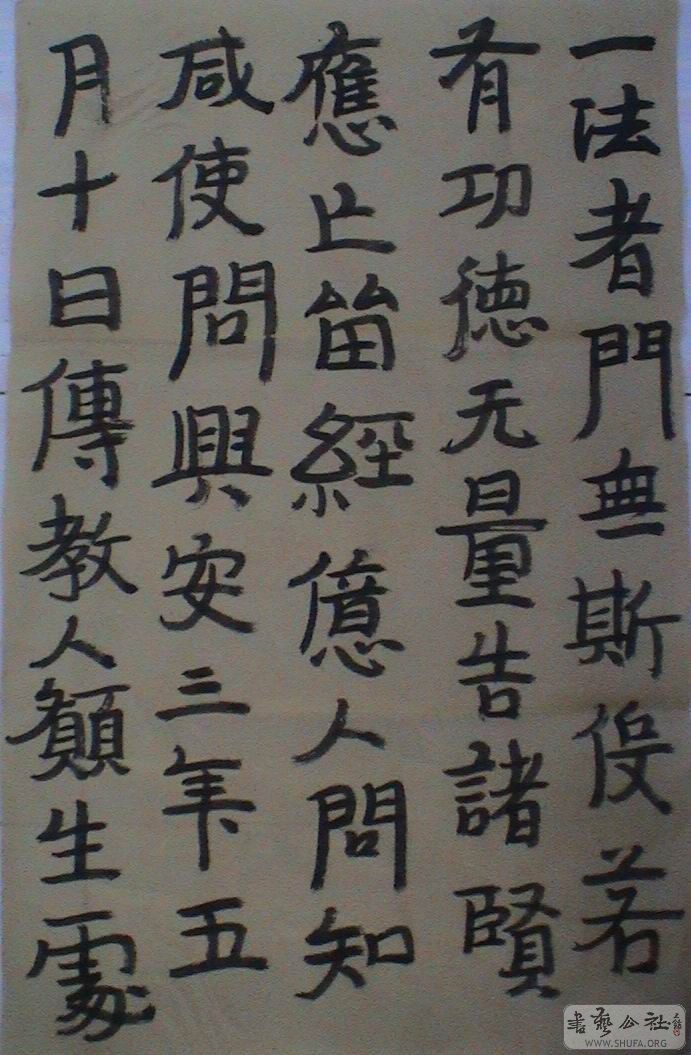 一法者門無斯伇若
有功德无量告諸賢
應止笛經億人問知
咸使問興安三年五
月十日傳教人願生處
書藝公社
WWW.SHUFA.ORG